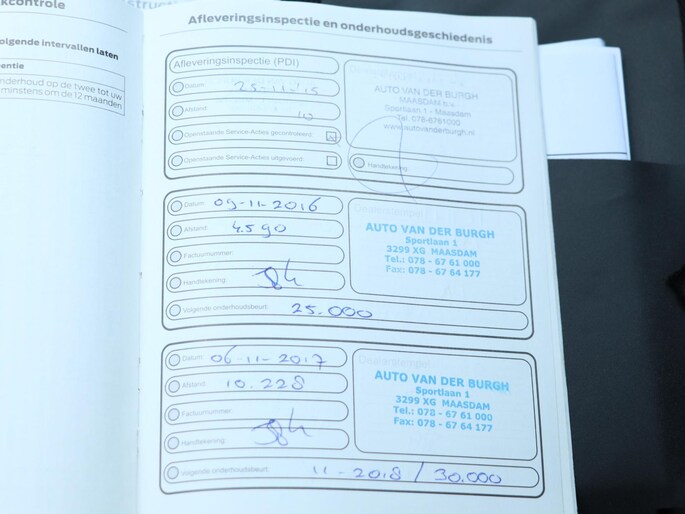 kcontrole
olgende intervallen laten
entie
nderhoud op de twee tot uw
minstens om de 12 maanden
Afleveringsinspectie en onderhoudsgeschiedenis
Afleveringsinspectie (PDI)
Datum: 25-11-'15
Afstand: 10
Openstaande Service-Acties gecontroleerd:
Openstaande Service-Acties uitgevoerd:
AUTO VAN DER BURGH
MAASDAM b.v.
Sportlaan 1 - Maasdam
Tel. 078-6761000
www.autovanderburgh.nl
Handtekening:
Datum: 09-11-2016
Afstand: 4.590
Factuurnummer:
Handtekening:
Volgende onderhoudsbeurt: 25.000
AUTO VAN DER BURGH
Sportlaan 1
3299 XG MAASDAM
Tel.: 078 - 67 61 000
Fax: 078 - 67 64 177
Datum: 06-11-2017
Afstand: 10.228
Factuurnummer:
Handtekening:
Volgende onderhoudsbeurt: 11-2018 / 30.000
AUTO VAN DER BURGH
Sportlaan 1
3299 XG MAASDAM
Tel.: 078 - 67 61 000
Fax: 078 - 67 64 177